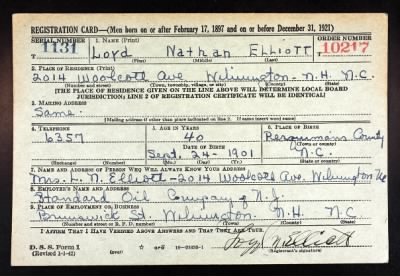 REGISTRATION CARD—(Men born on or after February 17, 1897 and on or before December 31, 1921)
SERIAL NUMBER 1. NAME (Print) ORDER NUMBER
1131 Loyd Nathan Elliott 10217
(First) (Middle) (Last)
2. PLACE OF RESIDENCE (Print)
2014 Woolcott Ave Wilmington - N.H. N.C.
(Number and street) (Town, township, village, or city) (County) (State)
[THE PLACE OF RESIDENCE GIVEN ON THE LINE ABOVE WILL DETERMINE LOCAL BOARD
JURISDICTION; LINE 2 OF REGISTRATION CERTIFICATE WILL BE IDENTICAL]
3. MAILING ADDRESS
Same
[Mailing address if other than place indicated on line 2. If same insert word same]
4. TELEPHONE 5. AGE IN YEARS 6. PLACE OF BIRTH
6357 40 Perquimans County
DATE OF BIRTH (Town or county)
Sept. 24 - 1901 N.C.
(Exchange) (Number) (Mo.) (Day) (Yr.) (State or country)
7. NAME AND ADDRESS OF PERSON WHO WILL ALWAYS KNOW YOUR ADDRESS
Mrs. L. N. Elliott - 2014 Woolcott Ave. Wilmington NC
8. EMPLOYER'S NAME AND ADDRESS
Standard Oil Company of N.J.
9. PLACE OF EMPLOYMENT OR BUSINESS
Brunswick St. Wilmington N.H. N.C.
(Number and street or R. F. D. number) (Town) (County) (State)
I AFFIRM THAT I HAVE VERIFIED ABOVE ANSWERS AND THAT THEY ARE TRUE.
D. S. S. Form 1
(Revised 1-1-42) (over)